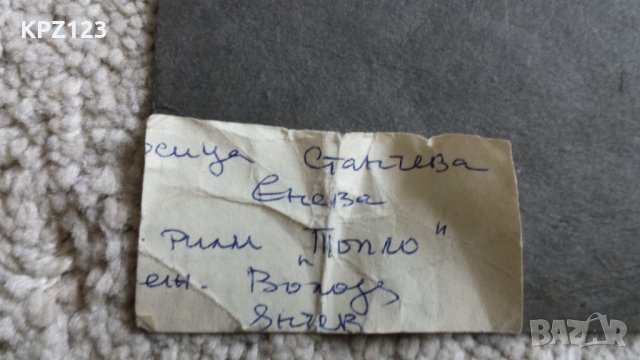 KPZ123
осица Станчева
Енева
. Филм „Топло"
ен. Володя
Янчев
BAZAR